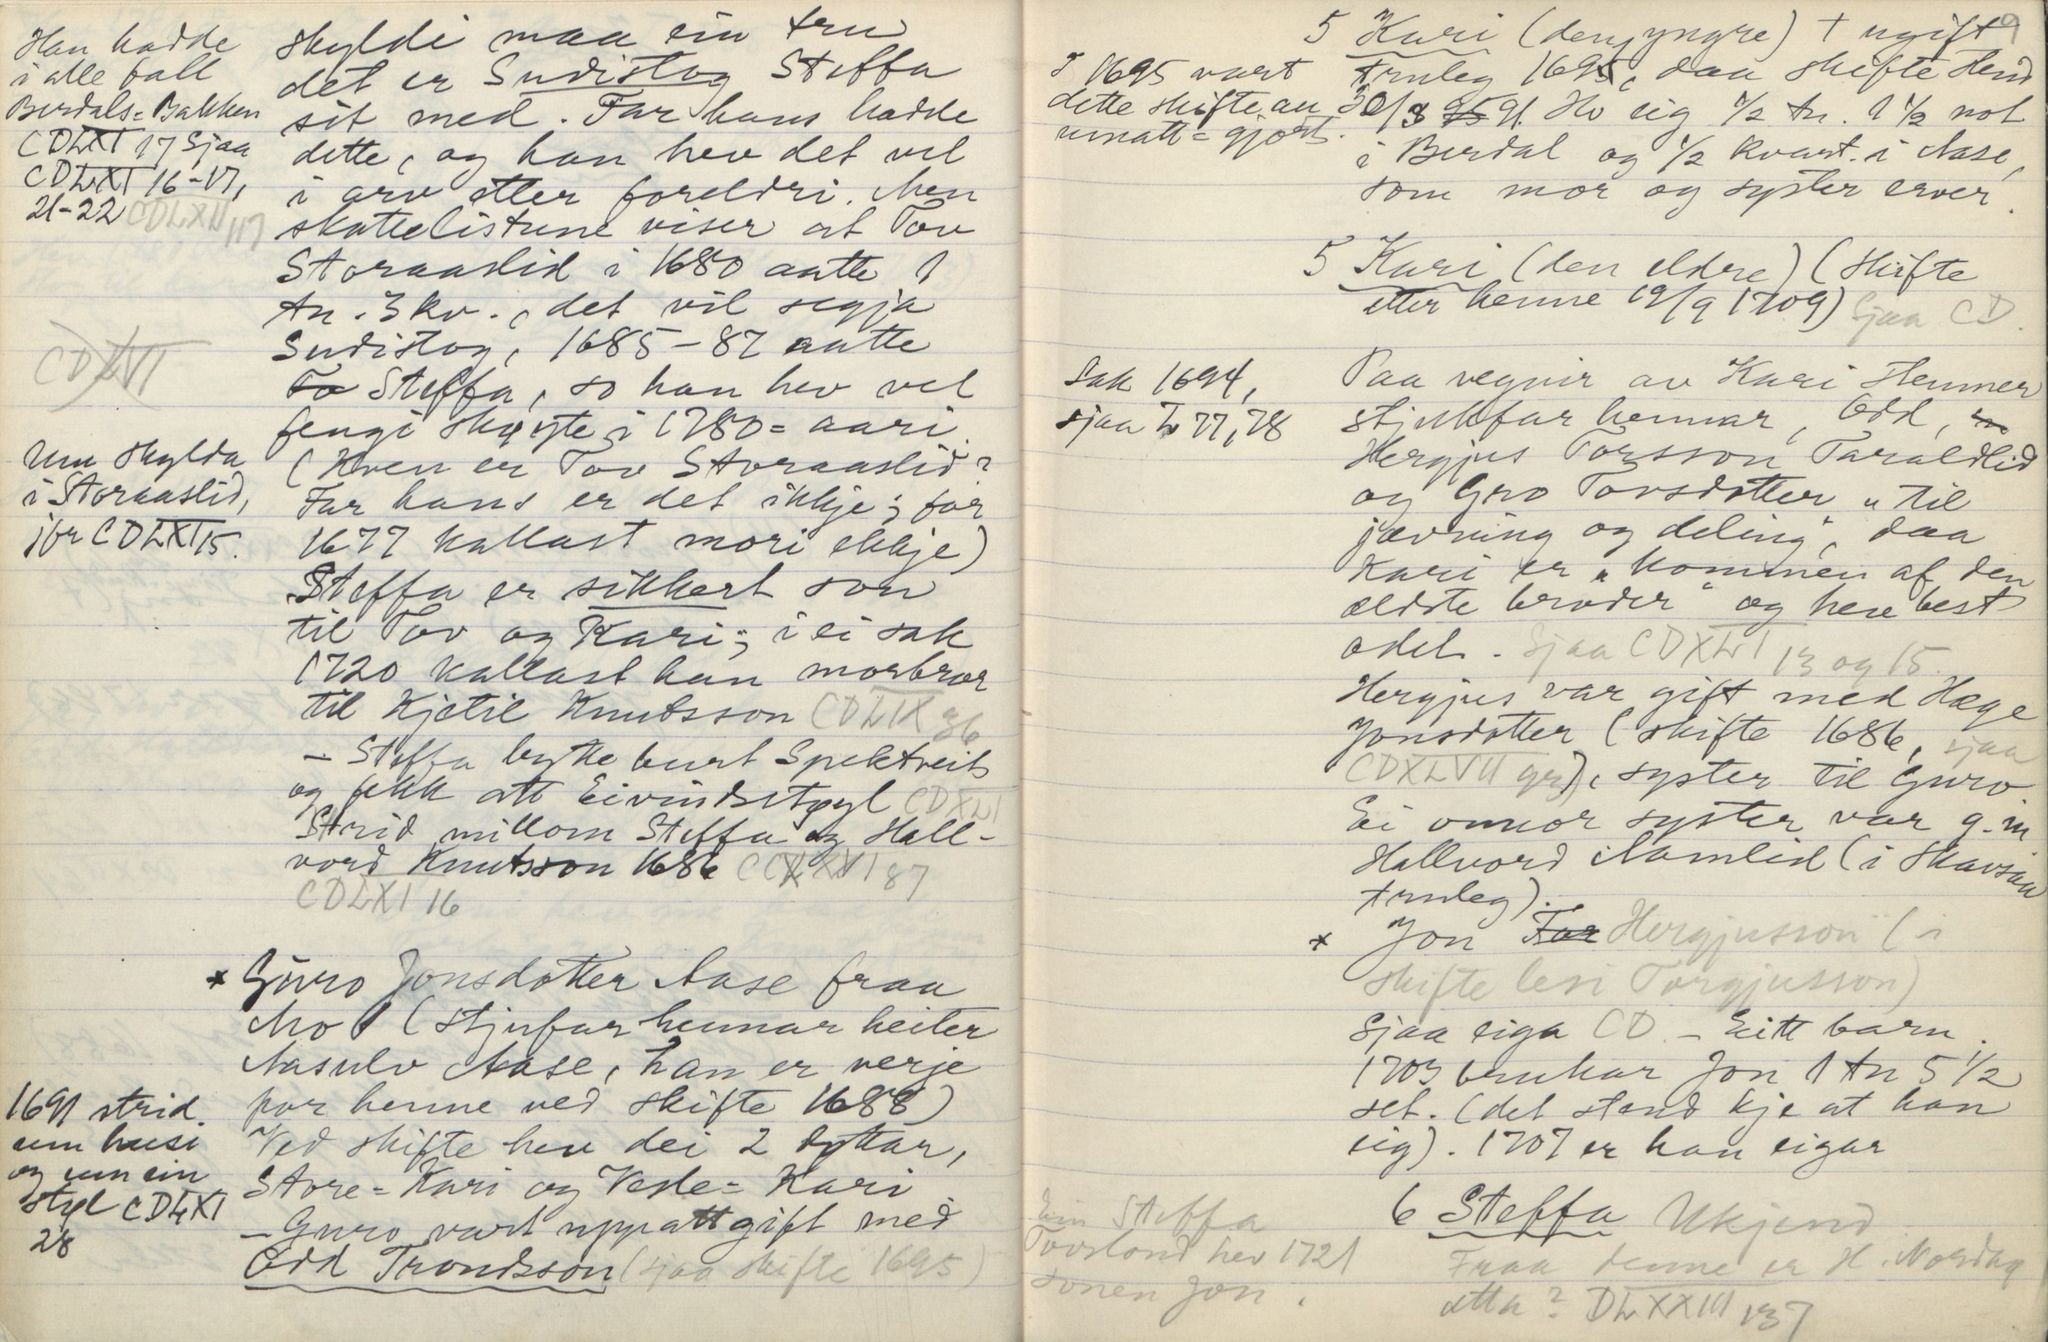 Han hadde
i alle fall
Berdals=Bakken
CDLXI 17 Sjaa
CDLXI 16-17,
21-22 CDLXII 117
CDLVI
Um skylda
i Storaaslid,
jfr CDLXI 15.
1691 strid
um husi
og um ein
styl CDLXI
28
skyldi maa ein tru
det er Sudistog Steffa
sit med. Far hans hadde
dette, og han hev det vel
i arv etter foreldri. Men
skattelistune viser at Tov
Storaaslid i 1680 aatte 1
tn. 3 kv., det vil segja
Sudistog, 1685-87 aatte
To Steffa, so han hev vel
fengi skøyte i 1780=aari
(Kven er Tov Storaaslid?
Far hans er det ikkje; for
1677 kallast mori ekkje)
Steffa er sikkert son
til Tov og Kari; i ei sak
1720 kallast han morbror
til Kjetil Knutsson CDLIX 36
- Steffa bytte burt Spektveit
og fekk att Eivindstøyl CDXLI
Strid millom Steffa og Hall-
vord Knutsson 1686 CCXXXVI 87
CDLXI 16
* Guro Jonsdotter Aase fraa
Mo (stjufar hennar heiter
Aasulv Aase, han er verje
for henne ved skifte 1688)
Ved skifte hev dei 2 døttar,
Store=Kari og Vesle=Kari
- Guro vart uppatt gift med
Odd Trondsson (sjaa skifte 1695)
9
I 1695 vart
dette skifte au
umatt=gjort.
Sak 1694,
sjaa L 77, 78
Ein Steffa
Tovsland hev 1721
sonen Jon.
5 Kari (den yngre) + ugift
truleg 1695, daa skifte held
30/3 95 91 Ho eig 1/2 tn. 1 1/2 not
i Berdal og 1/2 kvart. i Aase,
som mor og syster erver.
5 Kari (den eldre) (skifte
etter henne 19/9 1709) Sjaa CD.
Paa vegnir av Kari stemner
stjukfar hennar, Odd,
Hergjus Torsson Taraldlid
og Gro Tovsdotter "til
jævning og deling", daa
Kari er "kommen af den
ældste broder" og hev best
odel. Sjaa CDXLVI 13 og 15.
Hergjus var gift med Hæge
Jonsdotter (skifte 1686, sjaa
CDXLVII 93), syster til Guro.
Ei onnor syster var g. m
Hallvord Aamlid (i Skavsaa
truleg).
* Jon Tor Hergjusson (i
skifte lesi Torgjusson)
Sjaa eiga CD - Eitt barn.
1703 brukar Jon 1 tn 5 1/2
set. (det stend kje at han
eig). 1707 er han eigar
6 Steffa Ukjend
Fraa denne er H. Nordag
ætta? DLXXIII 137